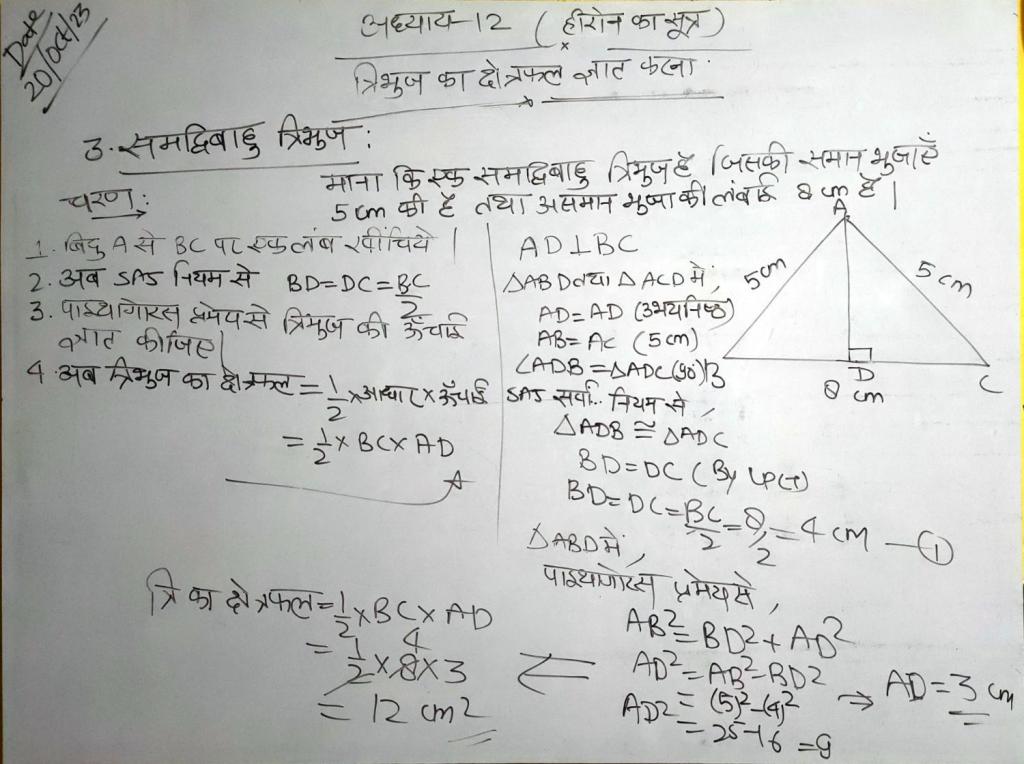 Date
20/Oct/23
अध्याय-12 (हीरोन का सूत्र)
त्रिभुज का क्षेत्रफल ज्ञात करना
3. समद्विबाहु त्रिभुज :
माना कि एक समद्विबाहु त्रिभुज है जिसकी समान भुजाएँ
5 cm की है तथा असमान भुजा की लंबाई 8 cm है |
चरण :
1. बिंदु A से BC पर एक लंब खींचिये |
2. अब SAS नियम से BD=DC=BC/2
3. पाइथागोरस प्रमेय से त्रिभुज की ऊँचाई
ज्ञात कीजिए |
4 अब त्रिभुज का क्षेत्रफल = 1/2 × आधार × ऊँचाई
= 1/2 × BC × AD
AD⊥BC
△ABD तथा △ACD में,
AD = AD (उभयनिष्ठ)
AB = AC (5 cm)
∠ADB = △ADC (90°)
SAS सर्वा. नियम से,
△ADB ≅ △ADC
BD = DC (By CPCT)
BD = DC = BC/2 = 8/2 = 4 cm —①
△ABD में,
पाइथागोरस प्रमेय से,
AB² = BD² + AD²
AD² = AB² - BD²
AD² = (5)² - (4)²
= 25-16 = 9
⇒ AD = 3 cm
त्रि का क्षेत्रफल = 1/2 × BC × AD
= 1/2 × 8 × 3
4
= 12 cm²
A
5 cm
5 cm
B
D
C
8 cm